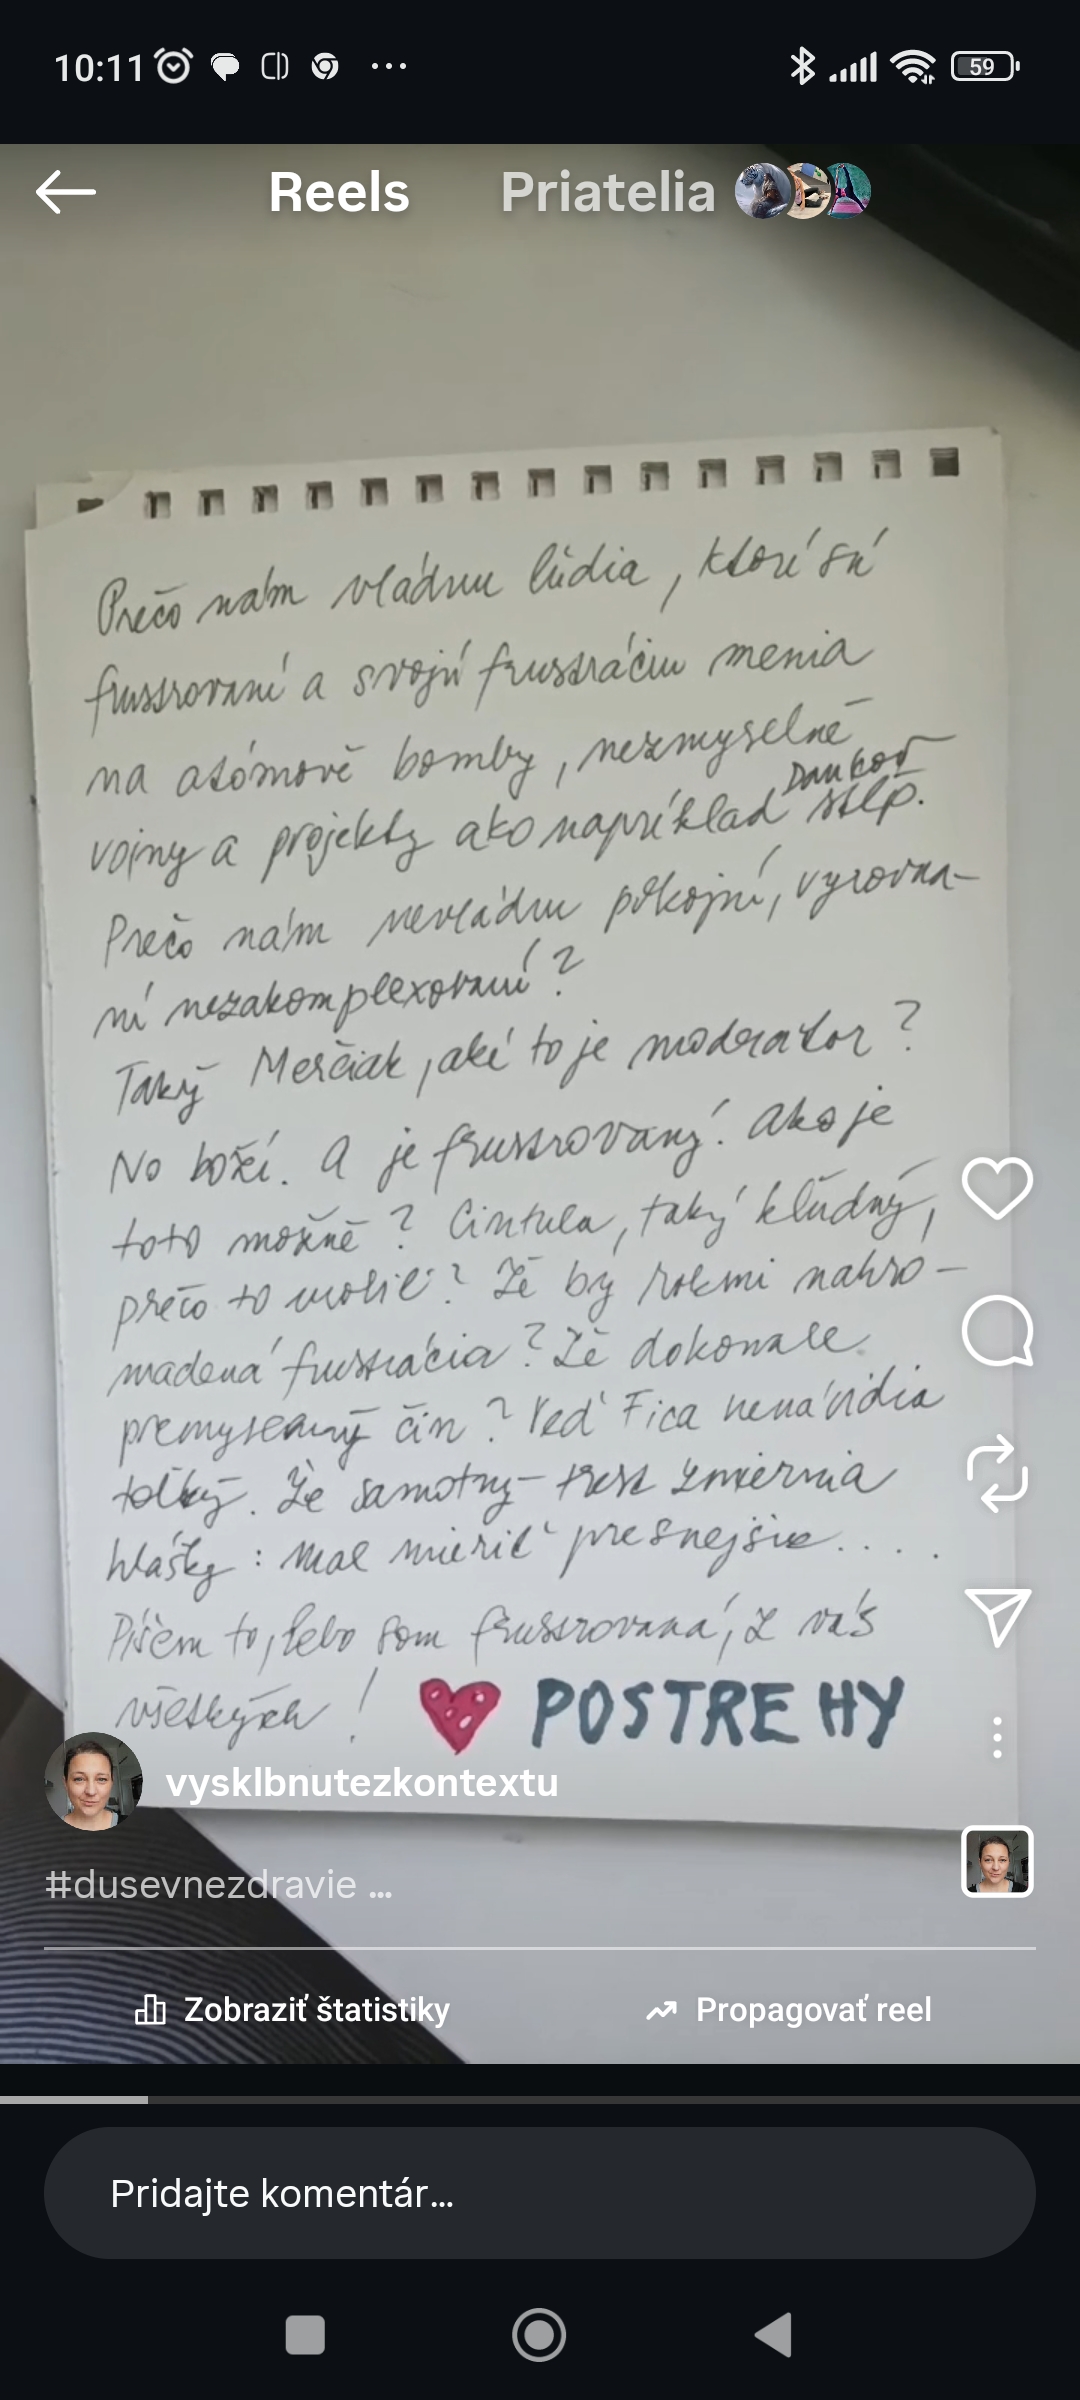 10:11
59
Reels Priatelia
Prečo nám vládnu ľúdia, ktorí sú
frustrovaní a svojú frustráciu menia
na atómové bomby, nezmyselné
Dankov
vojny a projekty ako napríklad stĺp.
Prečo nám nevládnu pokojní, vyrovna-
ní nezakomplexovaní?
Taký Merčiak, aký to je moderátor?
No boží. A je frustrovaný! Ako je
toto možné? Cintula, taký kľúdný,
prečo to urobil? Že by rokmi nahro-
madená frustrácia? Že dokonale
premyslený čin? Veď Fica nenávidia
toľký. Že samotný trest zmiernia
hlášky: mal mieriť presnejšie....
Píšem to, lebo som frustrovaná, z vás
všetkých! POSTREHY
vysklbnutezkontextu
#dusevnezdravie ...
Zobraziť štatistiky
Propagovať reel
Pridajte komentár...